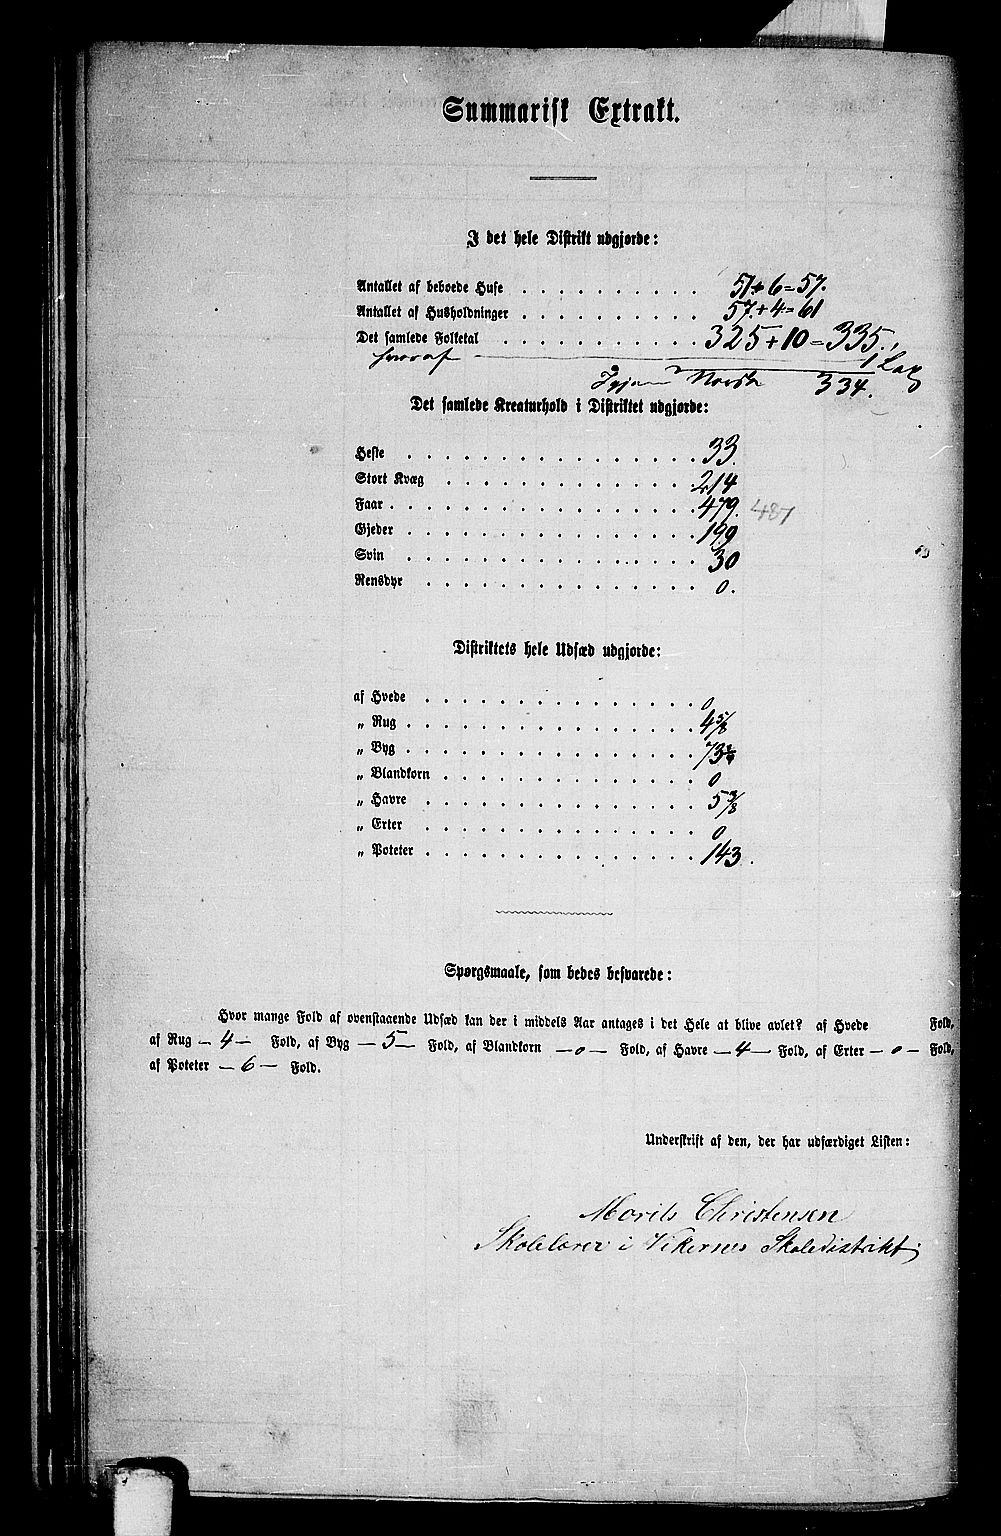 Summarisk Extrakt.
I det hele Distrikt udgjorde:
Antallet af beboede Huse . . . . . . . . . . 51+6=57.
Antallet af Husholdninger . . . . . . . . . . 57.+4=61
Det samlede Folketal . . . . . . . . . . . 325+10=335.
hvoraf — 1 Lap
Norsk 334.
Det samlede Kreaturhold i Distriktet udgjorde:
Heste . . . . . . . . . . . . . . . . 33.
Stort Kvæg . . . . . . . . . . . . . . 214
Faar . . . . . . . . . . . . . . . . . 479. 487
Gjeder . . . . . . . . . . . . . . . . 199
Svin . . . . . . . . . . . . . . . . 30
Rensdyr . . . . . . . . . . . . . . . 0.
Distriktets hele Udsæd udgjorde:
af Hvede . . . . . . . . . . . . . . . 0
„ Rug . . . . . . . . . . . . . . . . 4 5/8
„ Byg . . . . . . . . . . . . . . . . 73 3/4
„ Blandkorn . . . . . . . . . . . . . . 0
„ Havre . . . . . . . . . . . . . . . 5 3/8
„ Erter . . . . . . . . . . . . . . . 0
„ Poteter . . . . . . . . . . . . . . . 143.
Spørgsmaale, som bedes besvarede:
Hvor mange Fold af ovenstaaende Udsæd kan der i middels Aar antages i det Hele at blive avlet? af Hvede Fold,
af Rug — 4 — Fold, af Byg — 5 — Fold, af Blandkorn — 0 — Fold, af Havre — 4 — Fold, af Erter — 0 — Fold,
af Poteter — 6 — Fold.
Underskrift af den, der har udfærdiget Listen:
Morits Christensen
Skolelærer i Vikernes Skoledistrikt